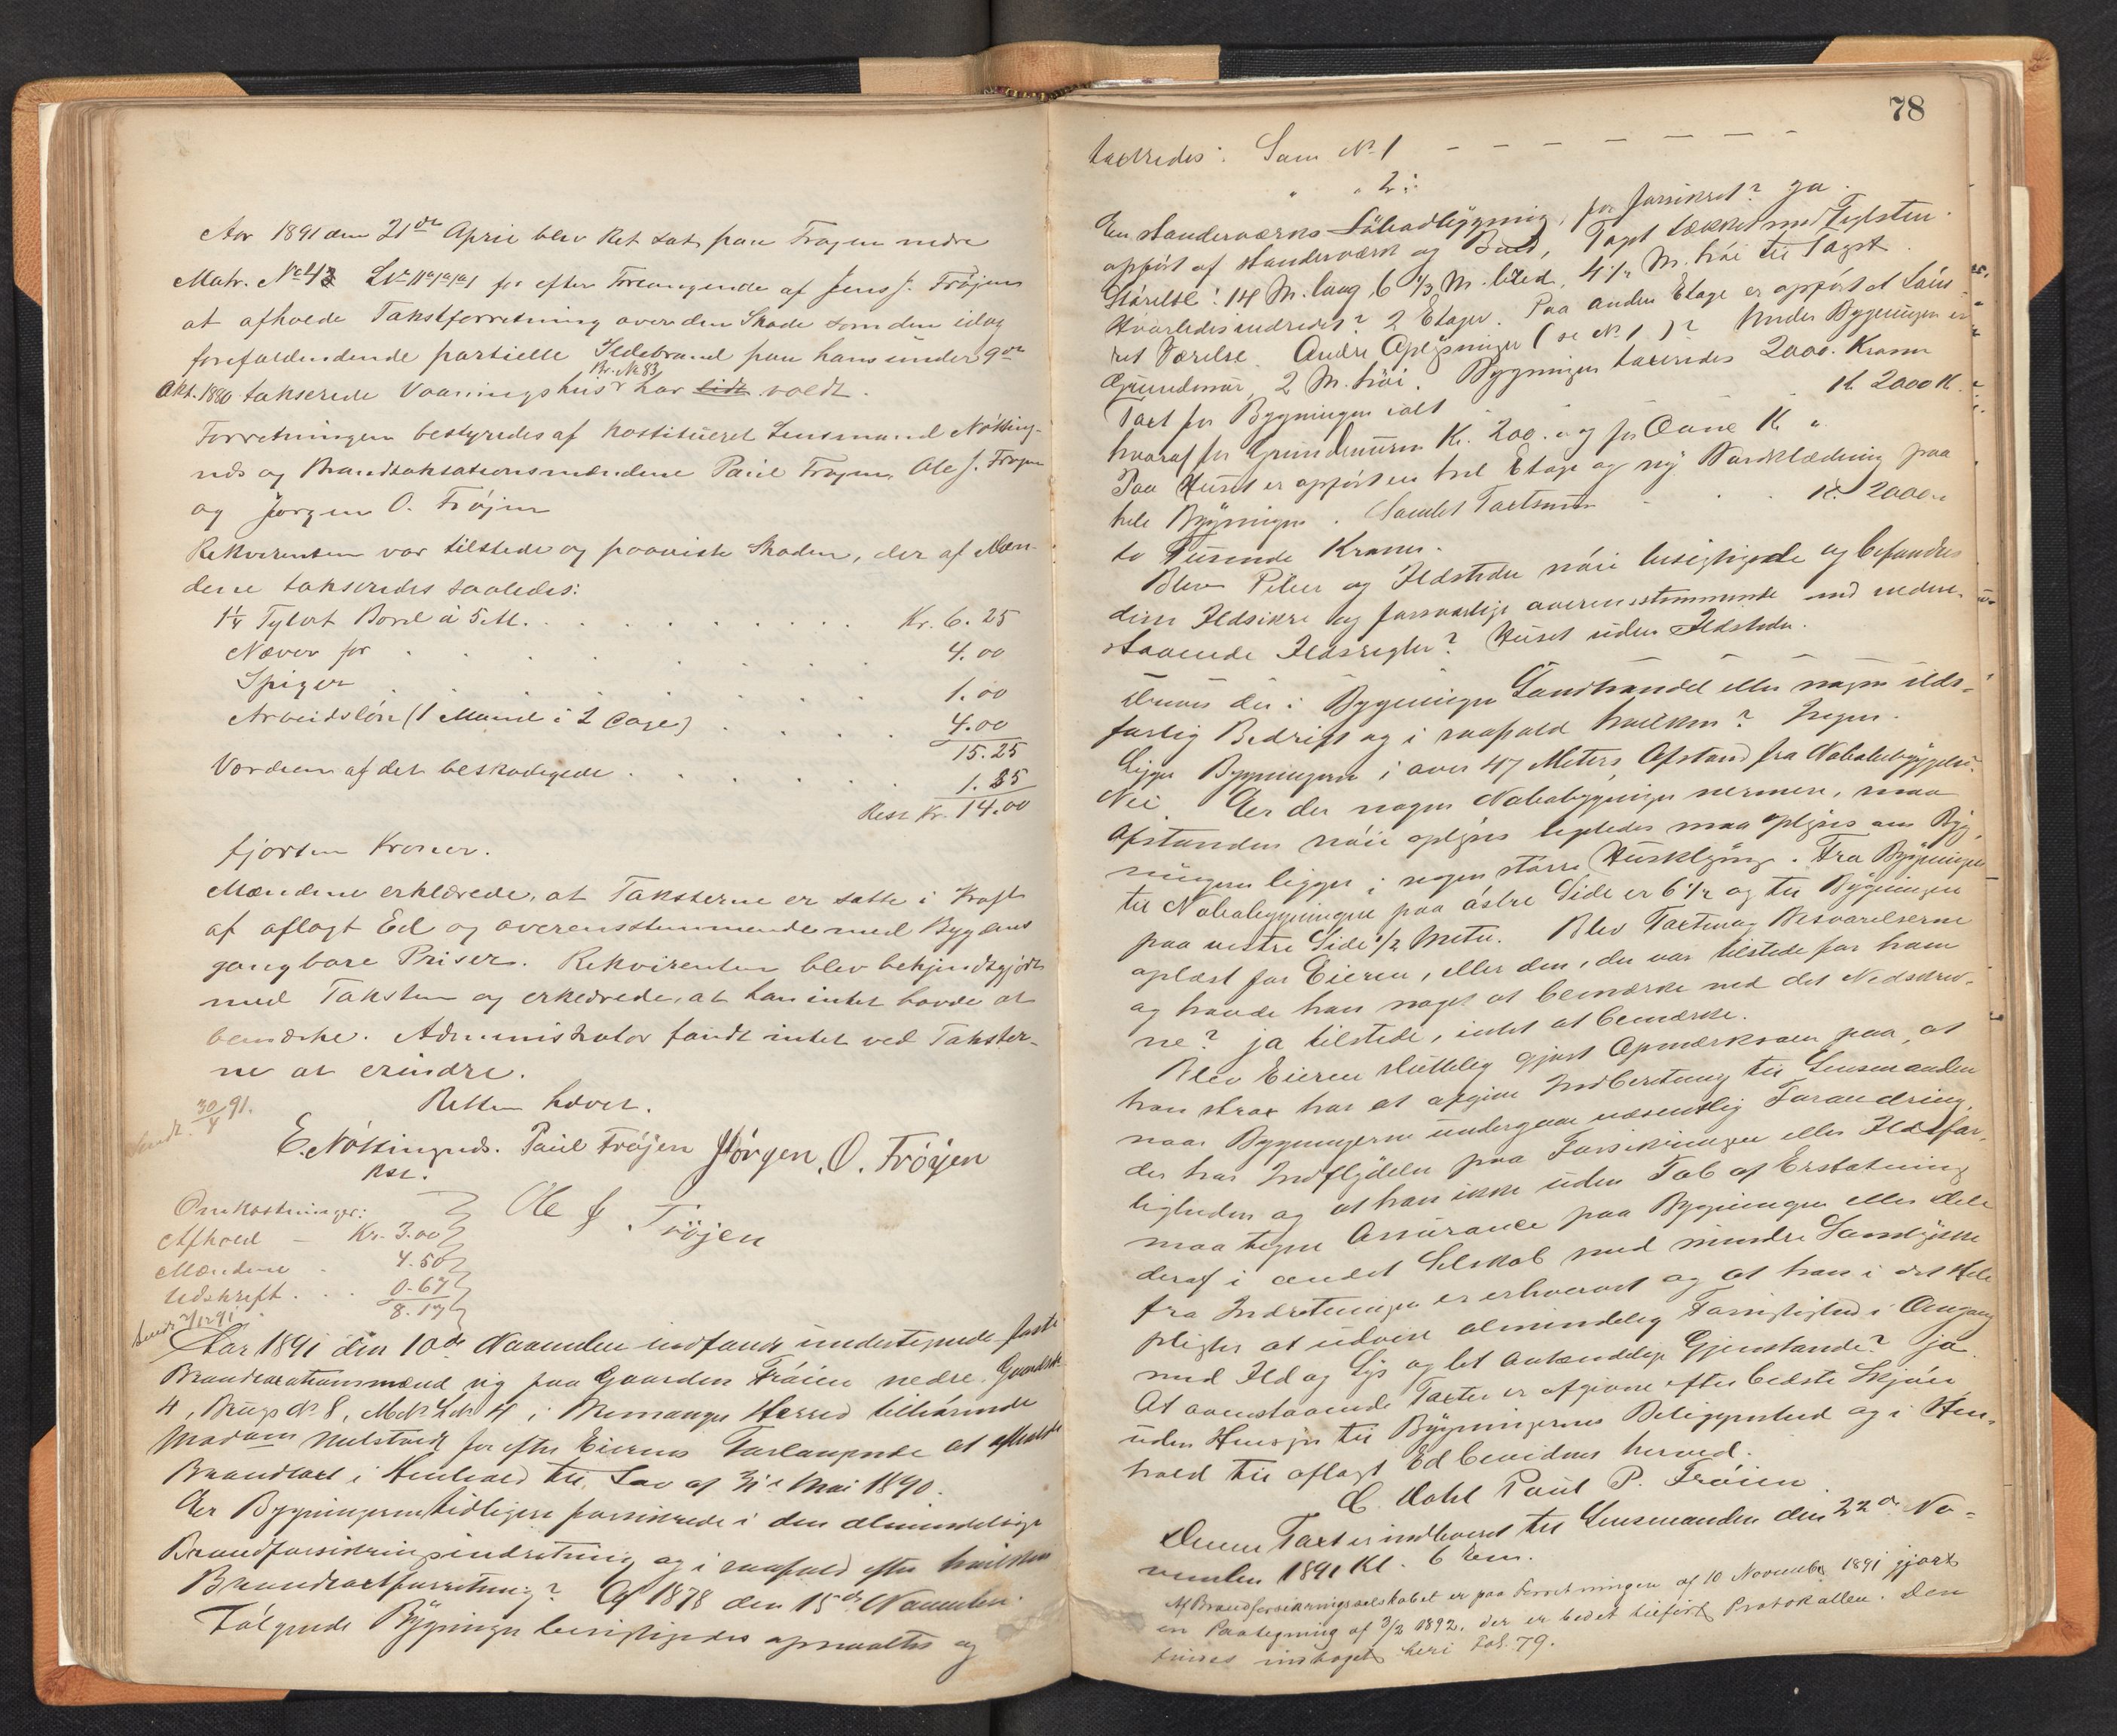 Aar 1891 den 21de April blev Ret sat paa Frøyen nedre
Matr. No 43 for efter Forlangende af Jens J. Frøjen
at afholde Takstforretning over den Skade som den idag
forefaldendende partielle Ildebrand paa hans under 9de
Br. No 83
Okt. 1880 takserede Vaaningshus har lidt voldt.
Forretningen bestyredes af konstitueret Lensmand Nøtting-
næs og Brandtakstationsmændene Paul Frøyen, Ole J. Frøyen
og Jørgen O. Frøjen
Rekvirenten var tilstede og paaviste Skaden, der af Mæn-
dene takseredes saaledes:
1¼ Tylvt Bord á 5 M. . . . . . . . . Kr. 6.25
Næver for . . . . . . . 4.00
Spiger . . . . . . . 1.00
Arbeidsløn (1 Mand i 2 Dage) . . . . 4.00
15.25
Værdien af det beskadigede . . . . . 1.25
Rest Kr. 14.00
fjorten Kroner.
Mændene erklærede, at Taksterne er satte i Kraft
af aflagt Ed og overensstemmende med Bygdens
gangbare Priser. Rekvirenten blev bekjendtgjort
med Taksten og erklærede, at han intet havde at
bemærke. Administrator fandt intet ved Takster-
ne at erindre.
Retten hævet.
Sendt. 30/4 91.
E. Nøttingnæs. Paul Frøjen Jørgen. O. Frøyen
kst.
Ole J. Frøjen
Omkostninger:
Afhold – Kr. 3.00
Mændene . 4.50
Udskrift . . . 0.67
8.17
Sendt 2/12 91
Aar 1891 den 10de November indfandt undertegnede faste
Brandtaxationsmænd sig paa Gaarden Frøien nedre. Gaards No
4, Brugs No 8, i Bremanger Herred tilhørende
Madam for efter Eierens Forlangende at afholde
Brandtaxt i Henhold til Lov af 31te Mai 1890.
Er Bygningerne tidligere forsikrede i den almindelige
Brandforsikringsindretning og i saafald efter hvilken
Brandtaxtforretning? Af 1878 den 15de November.
Følgende Bygninger besigtigedes opmaaltes og
78
taxeredes: Som No 1 – – – – – – –
" " 2:
En Standerværks Søbodbygning, før forsikret? ja.
opført af Standerværk og Bord, Taget tækket med Teglsten.
Størrelse: 14 M. lang 6⅓ M. bred, 4½ M. høi til Taget.
Hvorledes indredet? 2 Etager. Paa anden Etage er opført et
ret Værelse. Andre Oplysninger (se No 1)? Under Bygningen er
Grundmur, 2 M. høi. Bygningen taxeredes 2000. Kroner
Taxt for Bygningen ialt . . . . Kr. 2000 K.
hvoraf for Grundmuren Kr. 200. og for Ovne Kr. "
Paa Huset er opført en hel Etage og ny Bordklædning paa
hele Bygningen. Samlet Taxtsum . . . Kr. 2000.
to Tusende Kroner.
Blev Piber og Ildsteder nøie besigtigede og befandtes
disse Ildsikre og forsvarlige overensstemmende med neden-
staaende Ildsregler? Huset uden Ildsteder.
Drives der i Bygningen Landhandel eller nogen ilds-
farlig Bedrift og i saafald hvilken? Ingen.
Ligger Bygningerne i over 47 Meters Afstand fra Nabobebyggelse?
Nei. Er der nogen Nabobygninger nermere, maa
Afstanden nøie oplyses ligeledes maa oplyses om Byg-
ningerne ligger i nogen større Husklynge. Fra Bygningen
til Nabobygningen paa østre Side er 6½ og til Bygningen
paa vestre Side ½ Meter. Blev Taxten og Besvarelserne
oplæst for Eieren, eller den, der var tilstede for ham
og havde han noget at bemærke ved det Nedskrev-
ne? ja tilstede, intet at bemærke.
Blev Eieren sluttelig gjort Opmærksom paa, at
han strax har at afgive Indberetning til Lensmanden
naar Bygningerne undergaar væsentlig Forandring,
der har Indflydelse paa Forsikringen eller Ildsfar-
ligheden og at han ikke uden Tab af Erstatning
maa tegne Assurance paa Bygningen eller Dele
deraf i andet Selskab med mindre Samtykke
fra Indretningen er erhvervet og at han i det Hele
pligter at udvise almindelig Forsigtighed i Omgang
med Ild og Lys og let antændelige Gjenstande? ja.
At ovenstaaende Taxter er afgivne efter bedste Skjøn
uden Hensyn til Bygningernes Beliggenhed og i Hen-
hold til aflagt Ed bevidnes herved.
C. Dahl Paul P. Frøien
Denne Taxt er indleveret til Lensmanden den 22de No-
vember 1891 Kl. 6 Em.
Af Brandforsikringsselskabet er paa Forretningen af 10 November 1891 gjort
en Paategning af 3/2 1892, der er bedet tilført Protokollen. Den
findes indtaget heri Fol. 79.